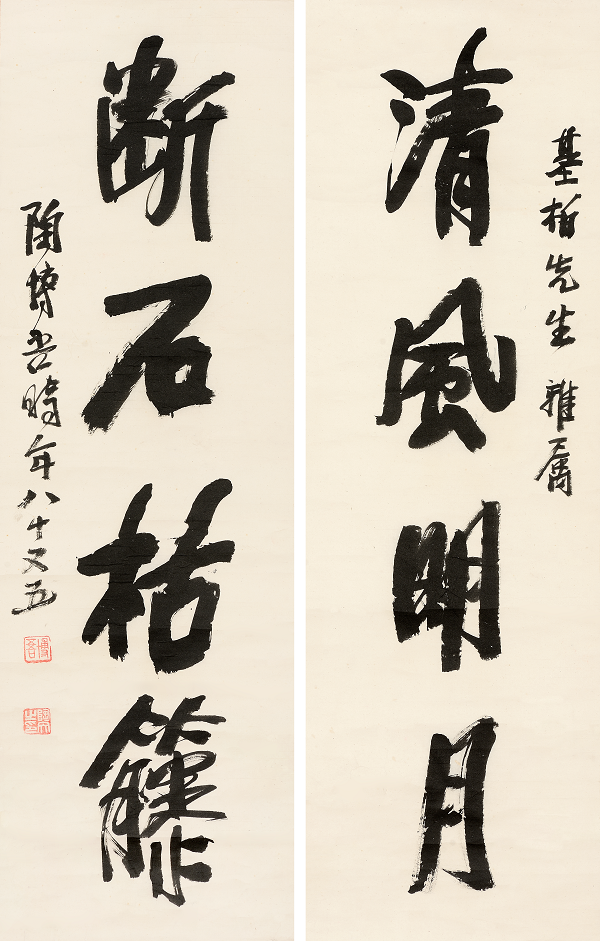 基析先生 雅屬
清風明月
断石枯籐
陶博吾時年八十又五
博吾